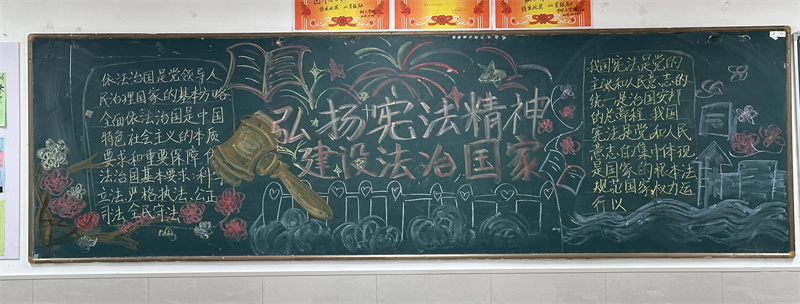 弘扬宪法精神
建设法治国家
依法治国是党领导人
民治理国家的基本方略
全面依法治国是中国
特色社会主义的本质
要求和重要保障
法治国基本要求:科学
立法、严格执法、公正
司法、全民守法
我国宪法是党的
主张和人民意志的
统一是治国安邦
的总章程 我国
宪法是党和人民
意志的集中体现
是国家的根本法
规范国家权力运
行以